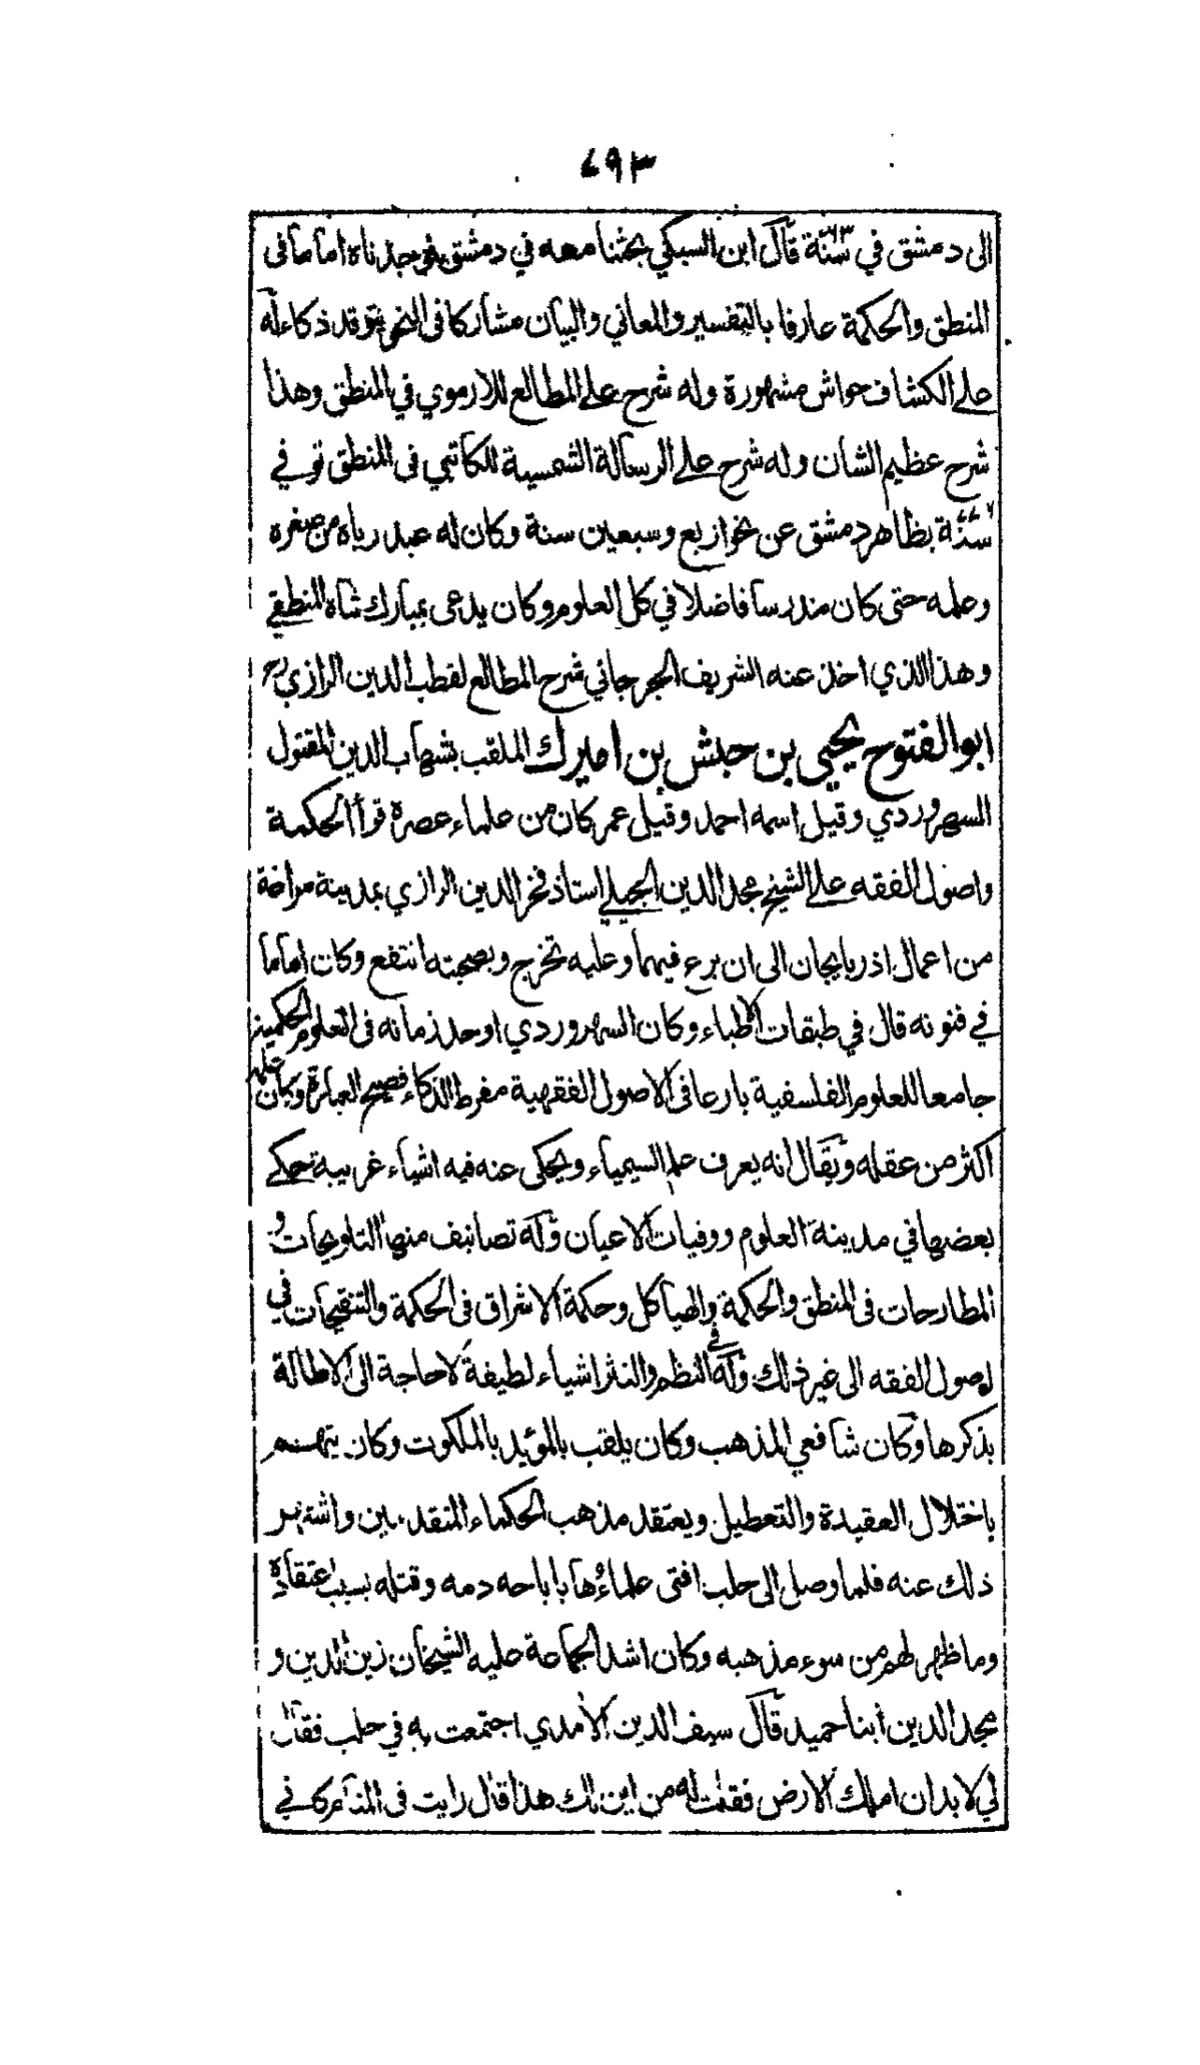 ٤٩٣
الى دمشق في سنة ٧٦٣ قال ابن السبكي بحثنا معه في دمشق فوجدناه اماما في
المنطق والحكمة عارفا بالتفسير والمعاني والبيان مشاركا في النحو يتوقد ذكاء له
على الكشاف حواش مشهورة وله شرح على المطالع للارموي في المنطق وهذا
شرح عظيم الشان وله شرح على الرسالة الشمسية للكاتبي في المنطق توفي
سنة ٧٦٦ بظاهر دمشق عن نحو اربع وسبعين سنة وكان له عبد رباه من صغره
وعلمه حتى كان مدرسا فاضلا في كل العلوم وكان يدعى بمبارك شاه المنطقي
وهذا الذي اخذ عنه الشريف الجرجاني شرح المطالع لقطب الدين الرازي رح
ابو الفتوح يحيى بن حبش بن اميرك الملقب بشهاب الدين المقتول
السهروردي وقيل اسمه احمد وقيل عمر كان من علماء عصره قرأ الحكمة
واصول الفقه على الشيخ مجد الدين الجيلي استاذ فخر الدين الرازي بمدينة مراغة
من اعمال اذربايجان الى ان برع فيهما وعليه تخرج وبصحبته انتفع وكان اماما
في فنونه قال في طبقات الاطباء وكان السهروردي اوحد زمانه في العلوم الحكمية
جامعا للعلوم الفلسفية بارعا في الاصول الفقهية مفرط الذكاء فصيح العبارة وكان علمه
اكثر من عقله ويقال انه يعرف علم السيمياء ويحكى عنه فيه اشياء غريبة حكى
بعضها في مدينة العلوم ووفيات الاعيان وله تصانيف منها التلويحات و
المطارحات في المنطق والحكمة والهياكل وحكمة الاشراق في الحكمة والتنقيحات في
اصول الفقه الى غير ذلك وله في النظم والنثر اشياء لطيفة لا حاجة الى الاطالة
بذكرها وكان شافعي المذهب وكان يلقب بالمؤيد بالملكوت وكان يتهم
باختلال العقيدة والتعطيل ويعتقد مذهب الحكماء المتقدمين واشتهر
ذلك عنه فلما وصل الى حلب افتى علماؤها باباحه دمه وقتله بسبب اعتقاده
وما ظهر لهم من سوء مذهبه وكان اشد الجماعة عليه الشيخان زين الدين و
مجد الدين ابنا حميد قال سيف الدين الآمدي اجتمعت به في حلب فقال
لي لا بد ان املك الارض فقلت له من اين لك هذا قال رايت في المنام كاني